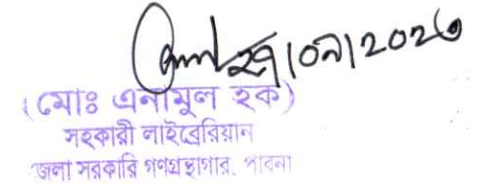 ২৭/০৯/২০২৩
(মোঃ এনামুল হক)
সহকারী লাইব্রেরিয়ান
জেলা সরকারি গণগ্রন্থাগার, পাবনা